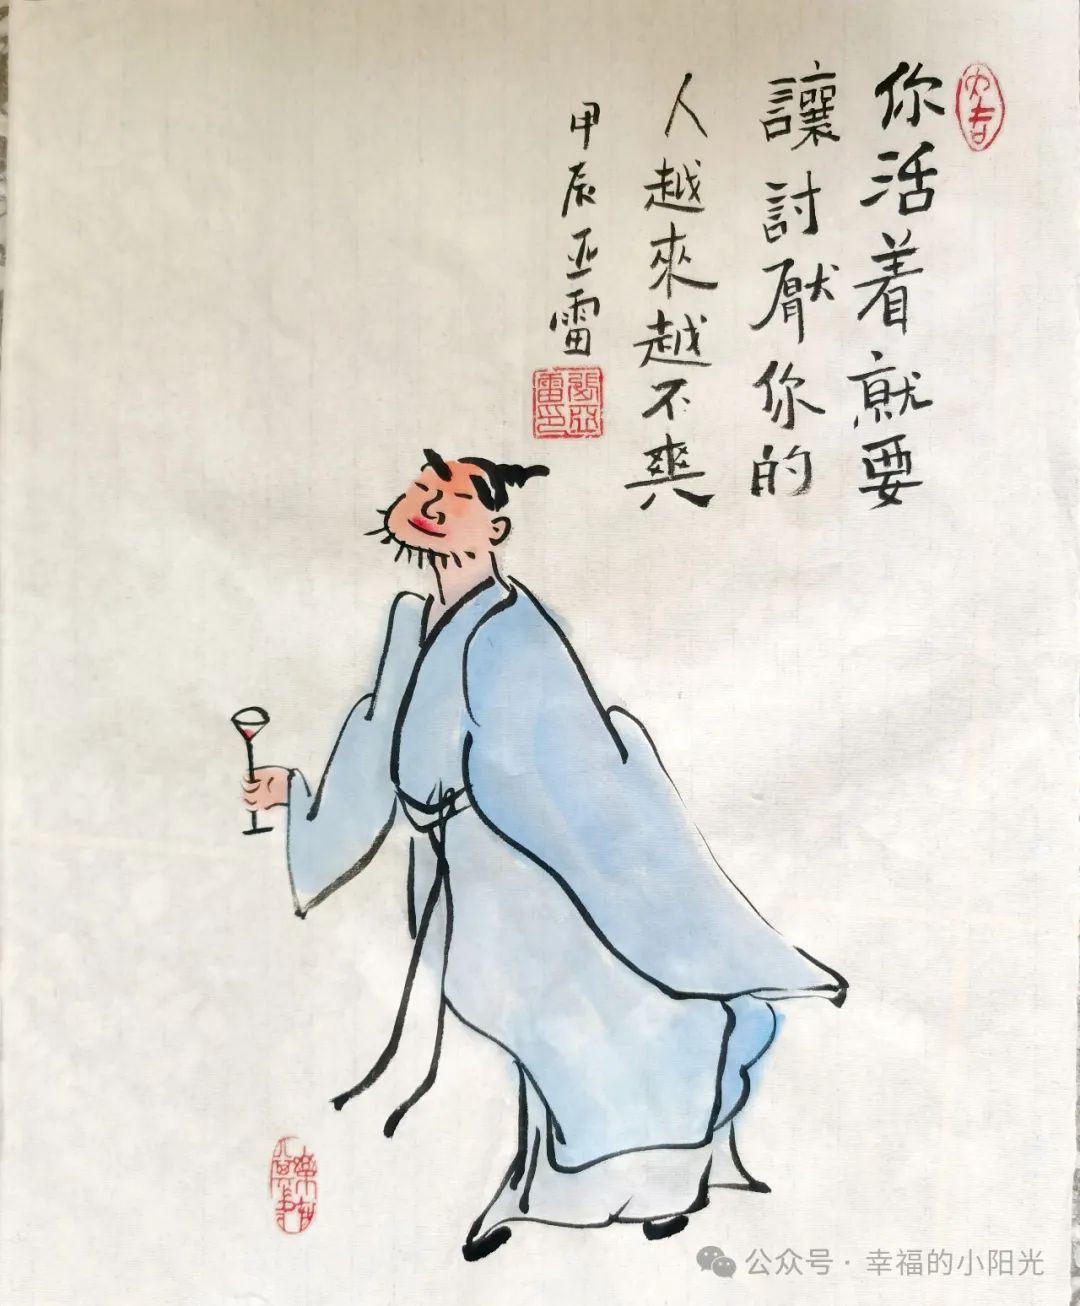 你活着就要
讓討厭你的
人越來越不爽
甲辰亚雷
公众号·幸福的小阳光